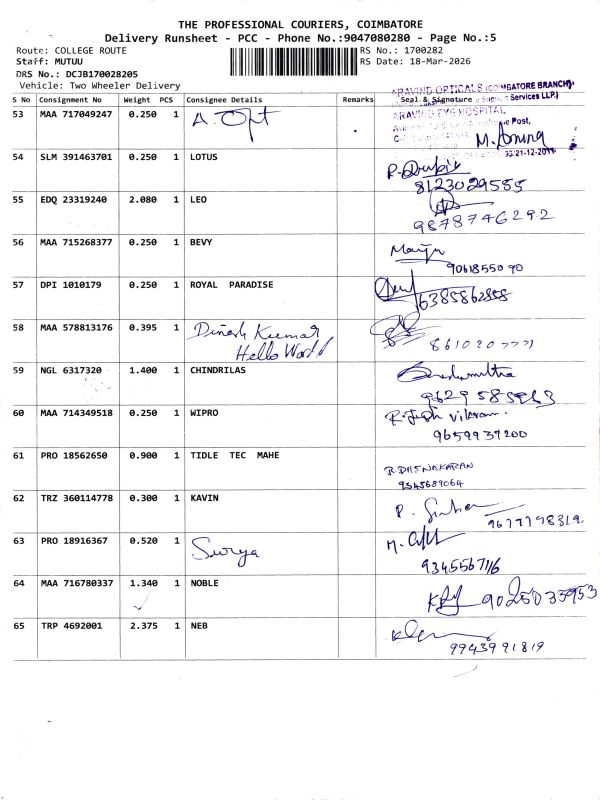 THE PROFESSIONAL COURIERS, COIMBATORE
Delivery Runsheet - PCC - Phone No.:9047080280 - Page No.:5
Route: COLLEGE ROUTE RS No.: 1700282
Staff: MUTUU RS Date: 18-Mar-2026
DRS No.: DCJB170028205
Vehicle: Two Wheeler Delivery
S No Consignment No Weight PCS Consignee Details Remarks Seal & Signature
ARAVIND OPTICALS (COIMBATORE BRANCH)
Services LLP.)
ARAVIND EYE HOSPITAL
Post,
53 MAA 717049247 0.250 1 A. Opt
54 SLM 391463701 0.250 1 LOTUS
8123029585
55 EDQ 23319240 2.080 1 LEO
9878746292
56 MAA 715268377 0.250 1 BEVY
9061855090
57 DPI 1010179 0.250 1 ROYAL PARADISE
6385862858
58 MAA 578813176 0.395 1 Dinesh Kumar
Hello World
59 NGL 6317320 1.400 1 CHINDRILAS
60 MAA 714349518 0.250 1 WIPRO
9659937200
61 PRO 18562650 0.900 1 TIDLE TEC MAHE
R. DHENAKARAN
9345689064
62 TRZ 360114778 0.300 1 KAVIN
9677798319
63 PRO 18916367 0.520 1 Surya
9345567116
64 MAA 716780337 1.340 1 NOBLE
9025035953
65 TRP 4692001 2.375 1 NEB
9943991819